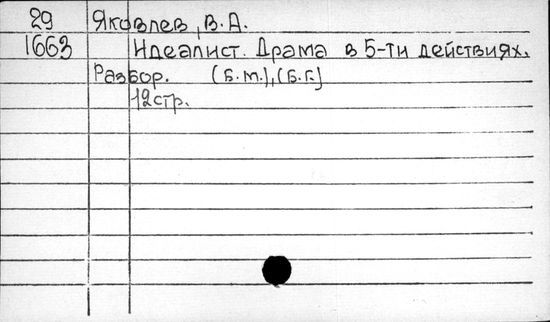 29 Яковлев, В.А.
1663 Идеалист. Драма в 5-ти действиях.
Разбор. (Б.м.), (Б.г.)
12стр.